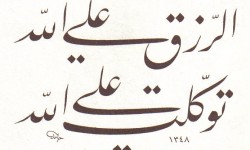 الرّزق علي الله
توكّلت علي الله
١٣٤٨